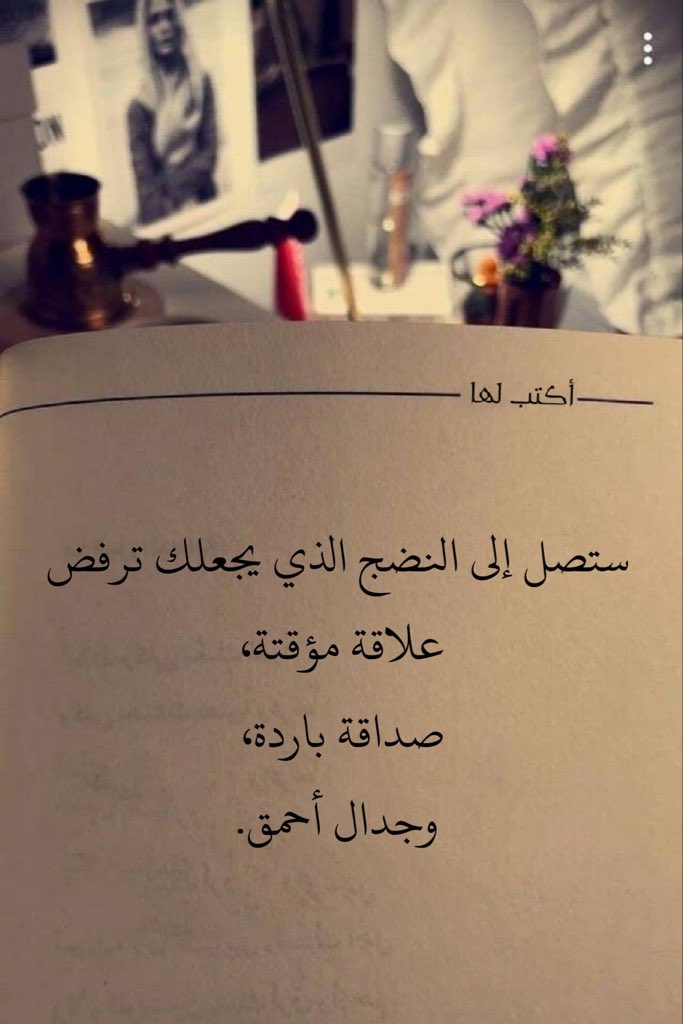 أكتب لها
ستصل إلى النضج الذي يجعلك ترفض
علاقة مؤقتة،
صداقة باردة،
وجدال أحمق.